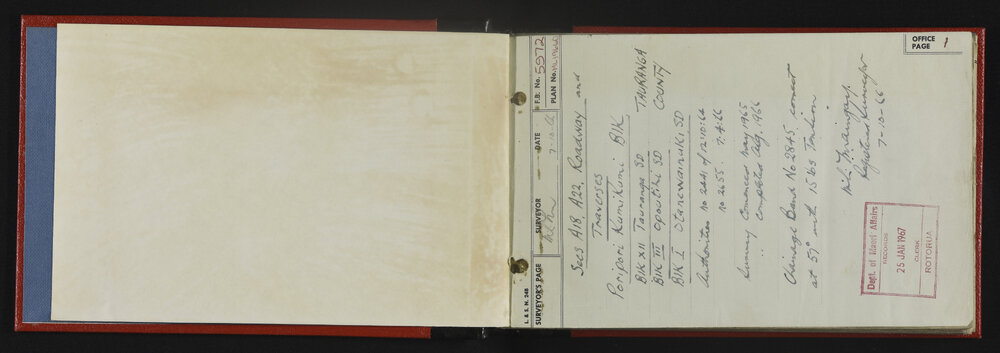 OFFICE
PAGE 1
L. & S. N. 248
SURVEYOR'S PAGE
SURVEYOR
DATE
7-10-66
F.B. No. 5972
PLAN No.
Secs A18, A22, Roadway and
Traverses
Poripori Kumikumi Blk
Blk XII Tauranga SD
Blk III Opoutihi SD
Blk I Otanewainuku SD
TAURANGA
COUNTY
Authorities no 2441 of 12:10:64
no 2655 7:4:66
Survey commenced may 1965
" completed Aug. 1966
Chainage Band No 2845 correct
at 57° with 15 lbs Tension
Registered Surveyor
7-10-66
Dept. of Maori Affairs
RECORDS
25 JAN 1967
CLERK
ROTORUA